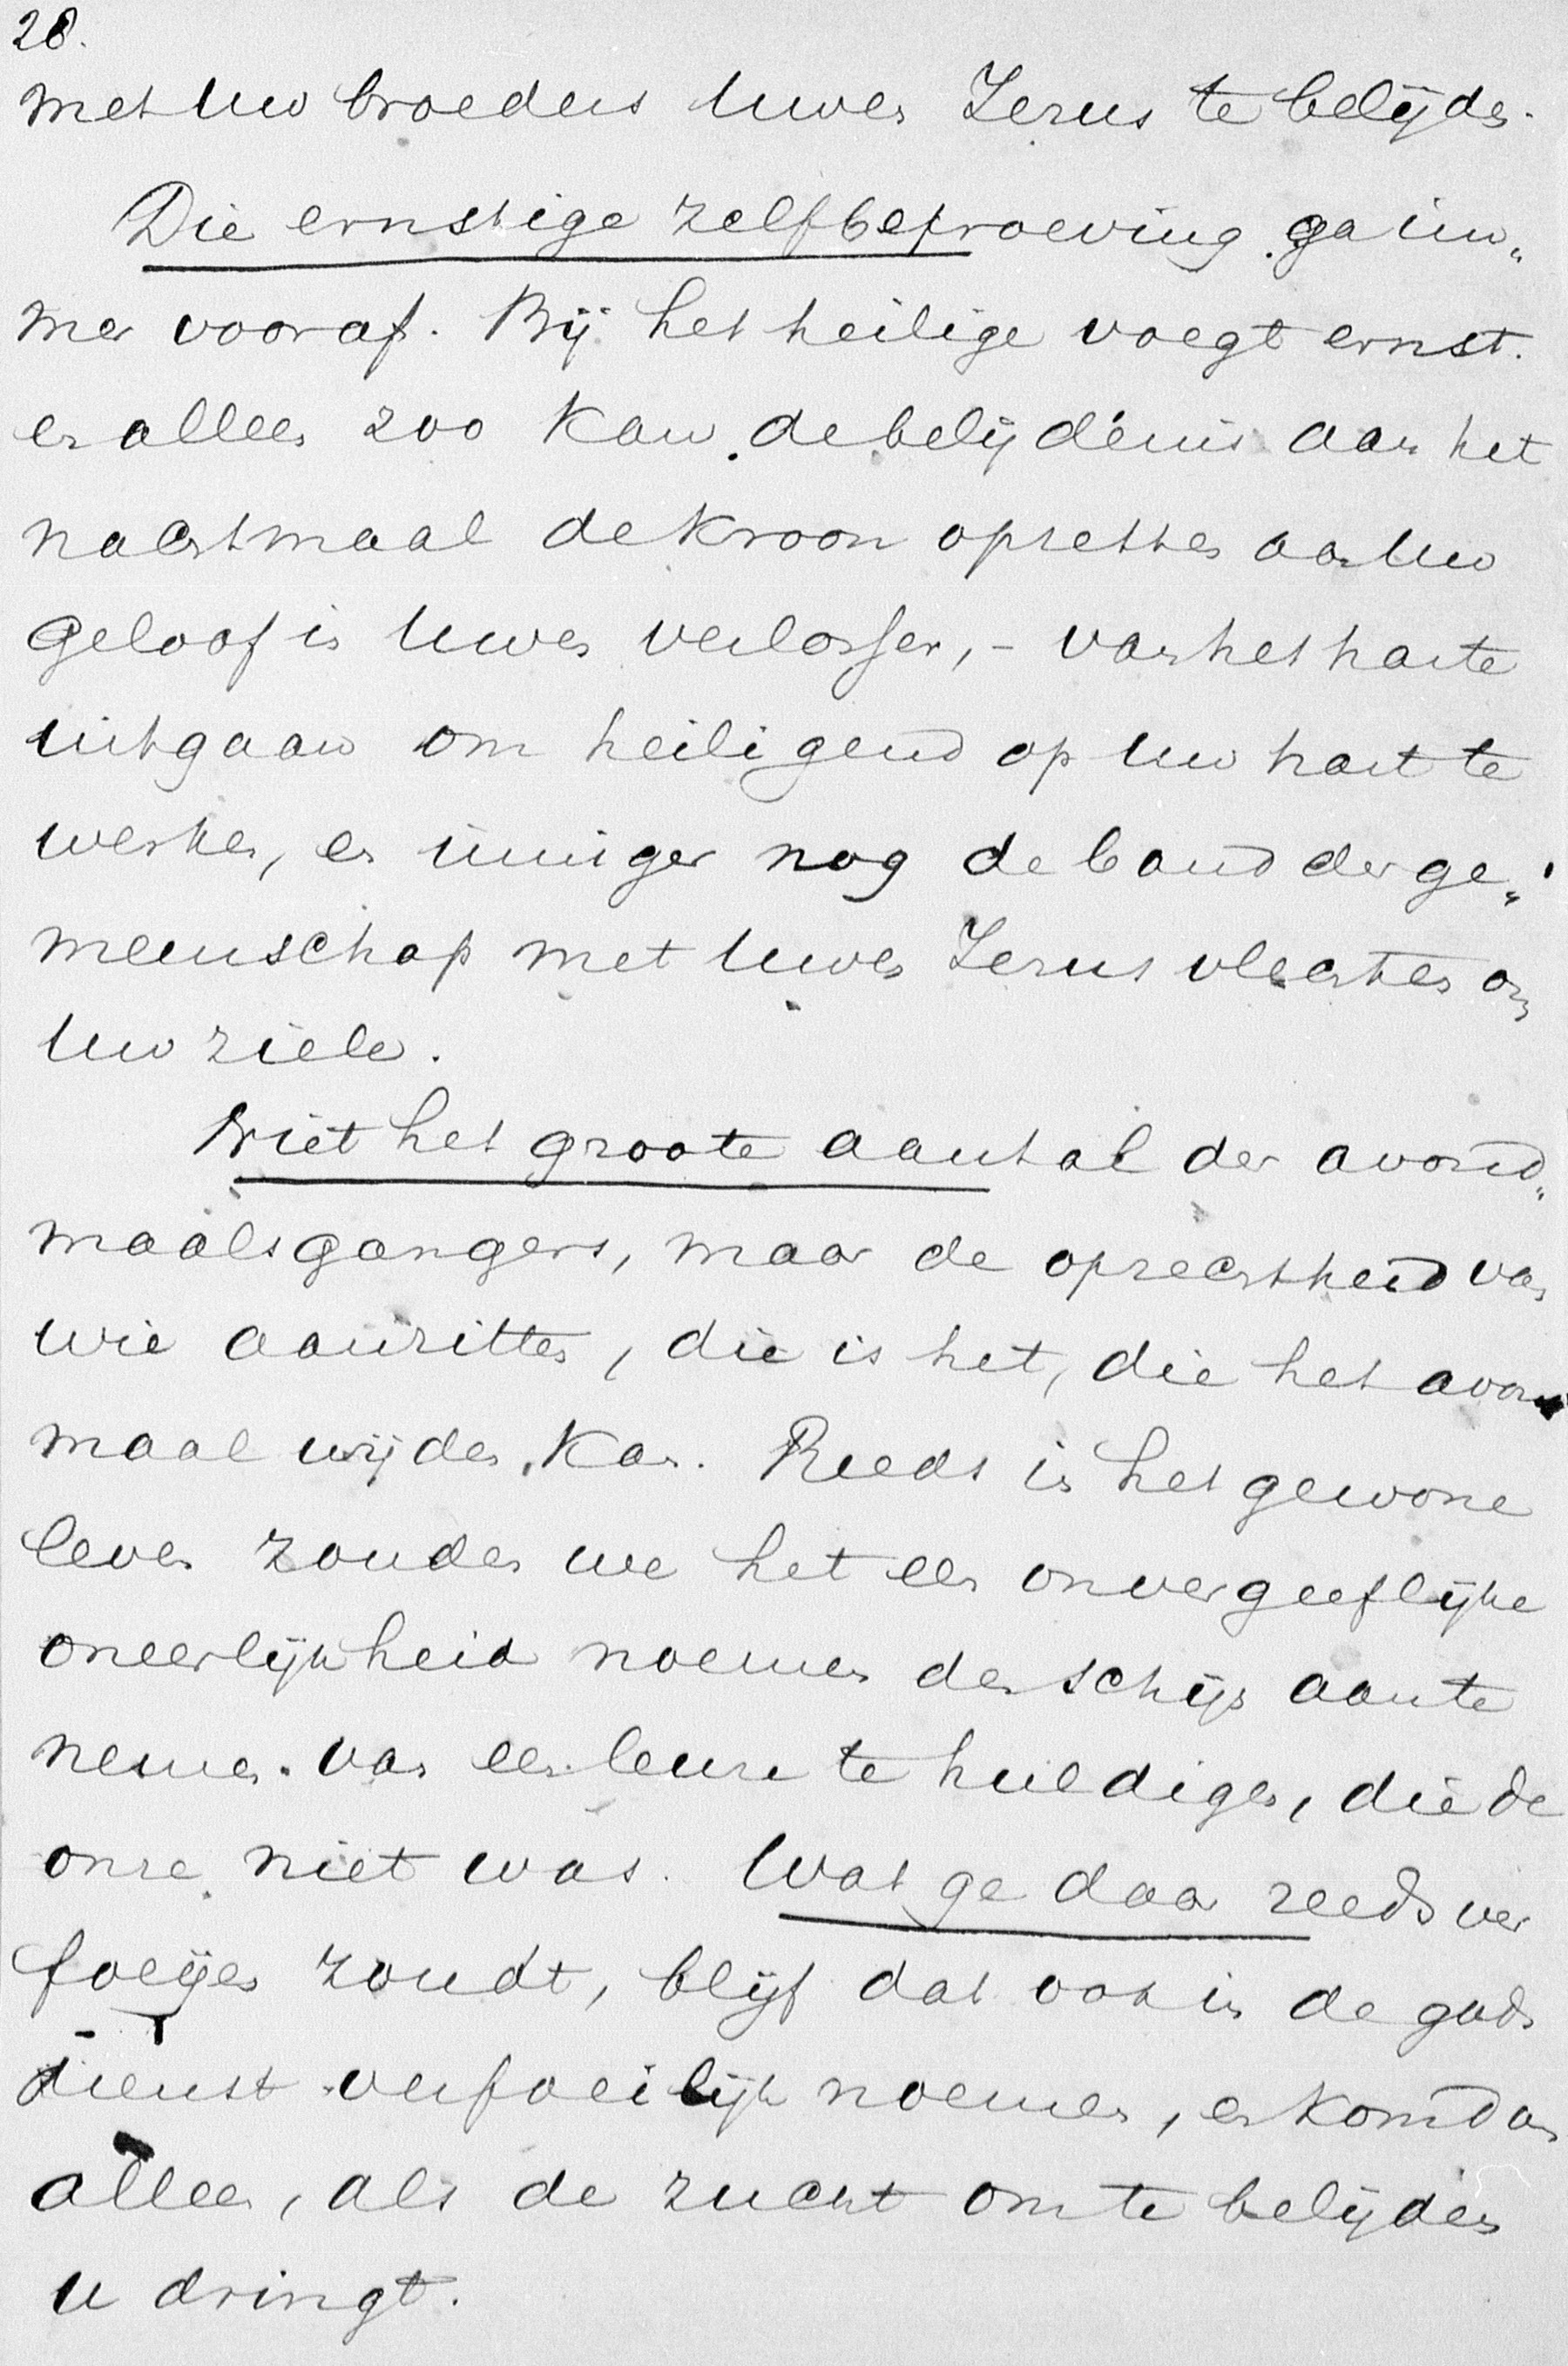 28.
met Uw broeders Uwen Jezus te belijden.
Die ernstige zelfbeproeving ga im„
mer vooraf. Bij het heilige voegt ernst.
en alleen zoo kan de belijdenis aan het
nachtmaal de kroon opzetten aan Uw
geloof in Uwen verlosser, - van het harte
uitgaan om heiligend op Uw hart te
werken, en inniger nog de band der ge„
meenschap met Uwen Jezus vlechten om
Uw ziele.
Niet het groote aantal der avond„
maalsgangers, maar de oprechtheid van
wie aanzitten, die is het, die het avond
maal wijden kan. Reeds in het gewone
leven zouden we het een onvergeeflijke
oneerlijkheid noemen den schijn aan te
nemen van een leuze te huldigen, die de
onze niet was. Wat ge daar reeds ver
foeijen zoudt, blijf dat ook in de gods
dienst verfoeilijk noemen, en kom dan
alleen, als de zucht om te belijden
u dringt.